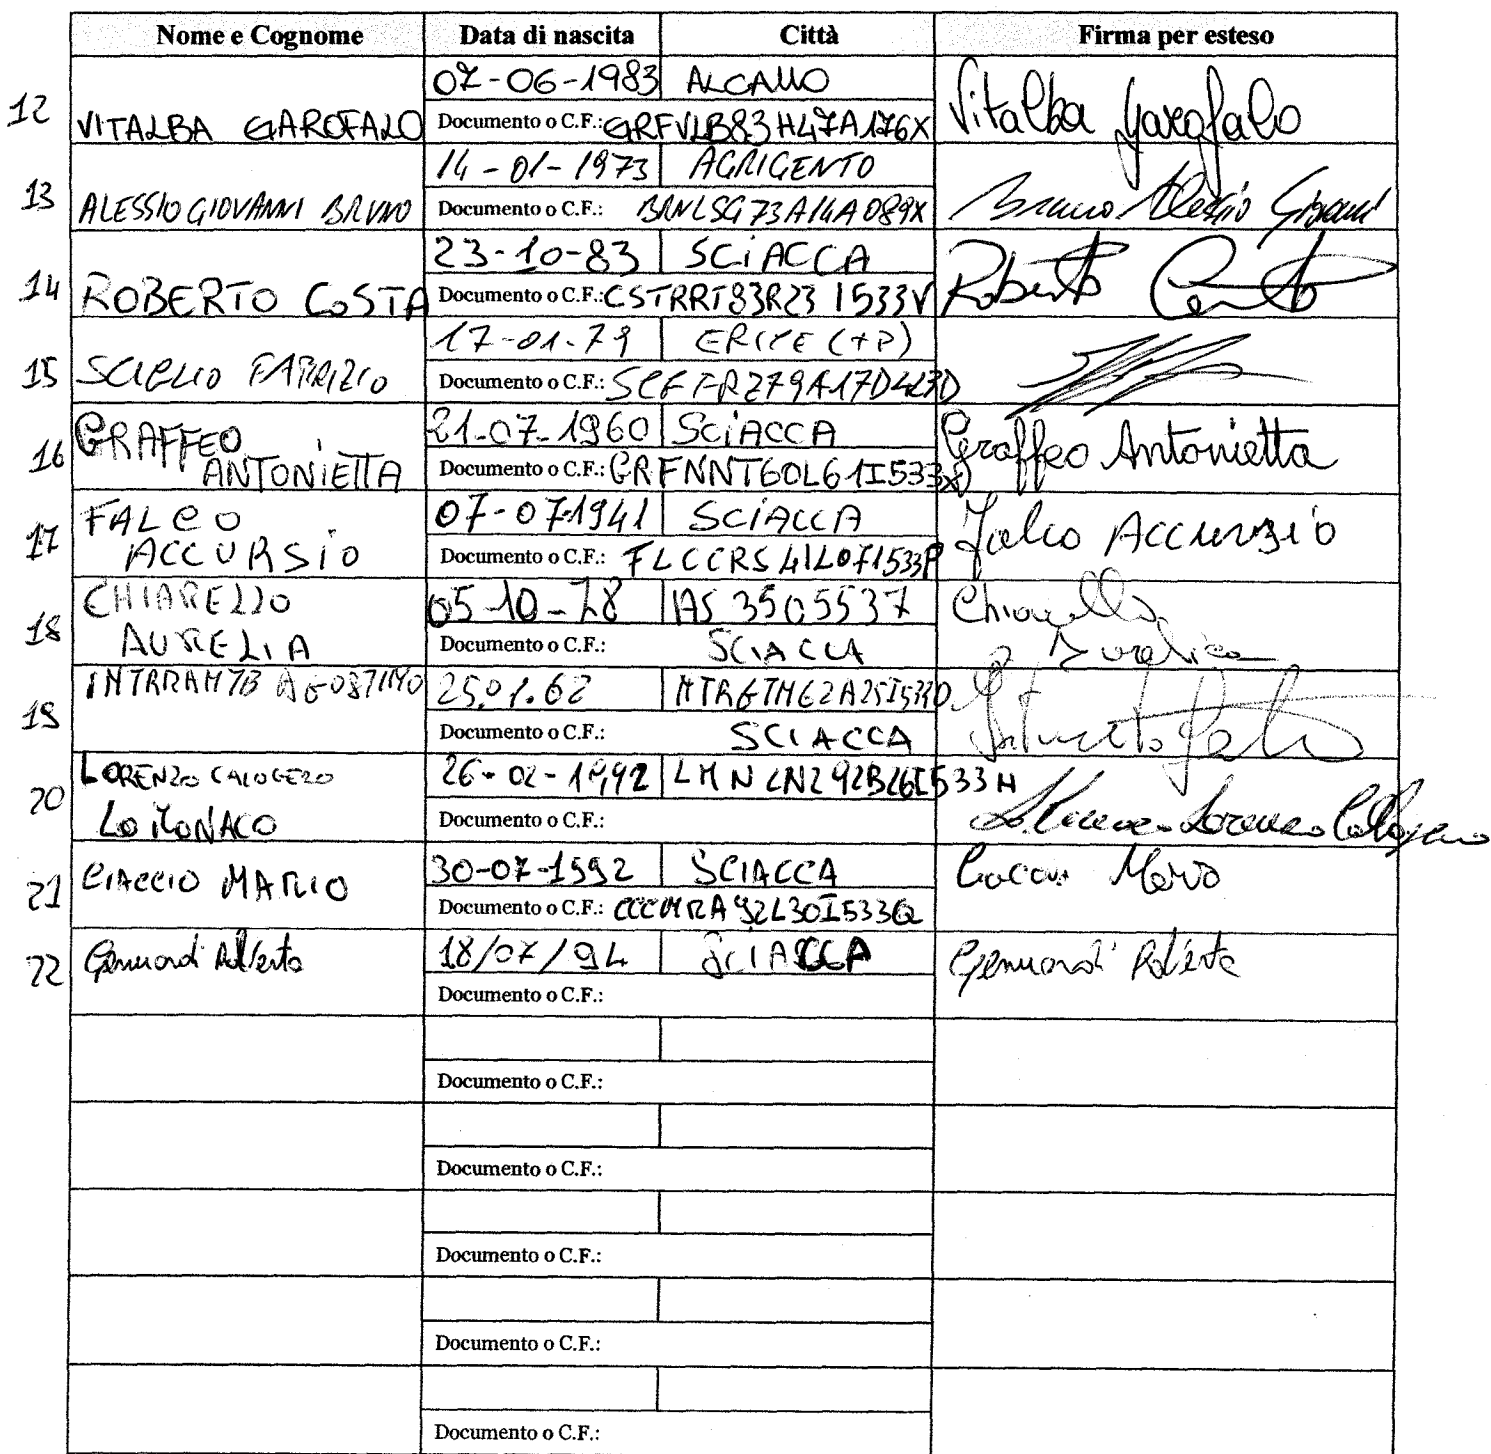 Nome e Cognome Data di nascita Città Firma per esteso
12 VITALBA GAROFALO 07-06-1983 ALCAMO Vitalba Garofalo
Documento o C.F.: GRFVLB83H47A176X
13 ALESSIO GIOVANNI BRUNO 14-01-1973 AGRIGENTO Bruno Alessio Giovanni
Documento o C.F.: BRNLSG73A14A089X
14 ROBERTO COSTA 23-10-83 SCIACCA Roberto Costa
Documento o C.F.: CSTRRT83R23I533V
15 FABRIZIO 17-01-79 ERICE (TP)
Documento o C.F.:
16 GRAFFEO 21-07-1960 SCIACCA Graffeo Antonietta
ANTONIETTA Documento o C.F.: GRFNNT60L61I533X
17 FALCO 07-07-1941 SCIACCA Falco Accursio
ACCURSIO Documento o C.F.: FLCCRS41L07I533P
18 CHIARELLO 05-10-78 AS 3505537 Chiarello
AURELIA Documento o C.F.: SCIACCA Aurelia
19 AGOSTINO 25.01.62
Documento o C.F.: SCIACCA
20 LORENZO CALOGERO 26-02-1992 LMNLNZ92B26I533H
LO MONACO Documento o C.F.: Lo Monaco Lorenzo Calogero
21 CIACCIO MARIO 30-07-1992 SCIACCA Ciaccio Mario
Documento o C.F.: CCCMRA92L30I533Q
22 Genuardi Roberta 18/07/94 SCIACCA Genuardi Roberta
Documento o C.F.:
Documento o C.F.:
Documento o C.F.:
Documento o C.F.:
Documento o C.F.:
Documento o C.F.: